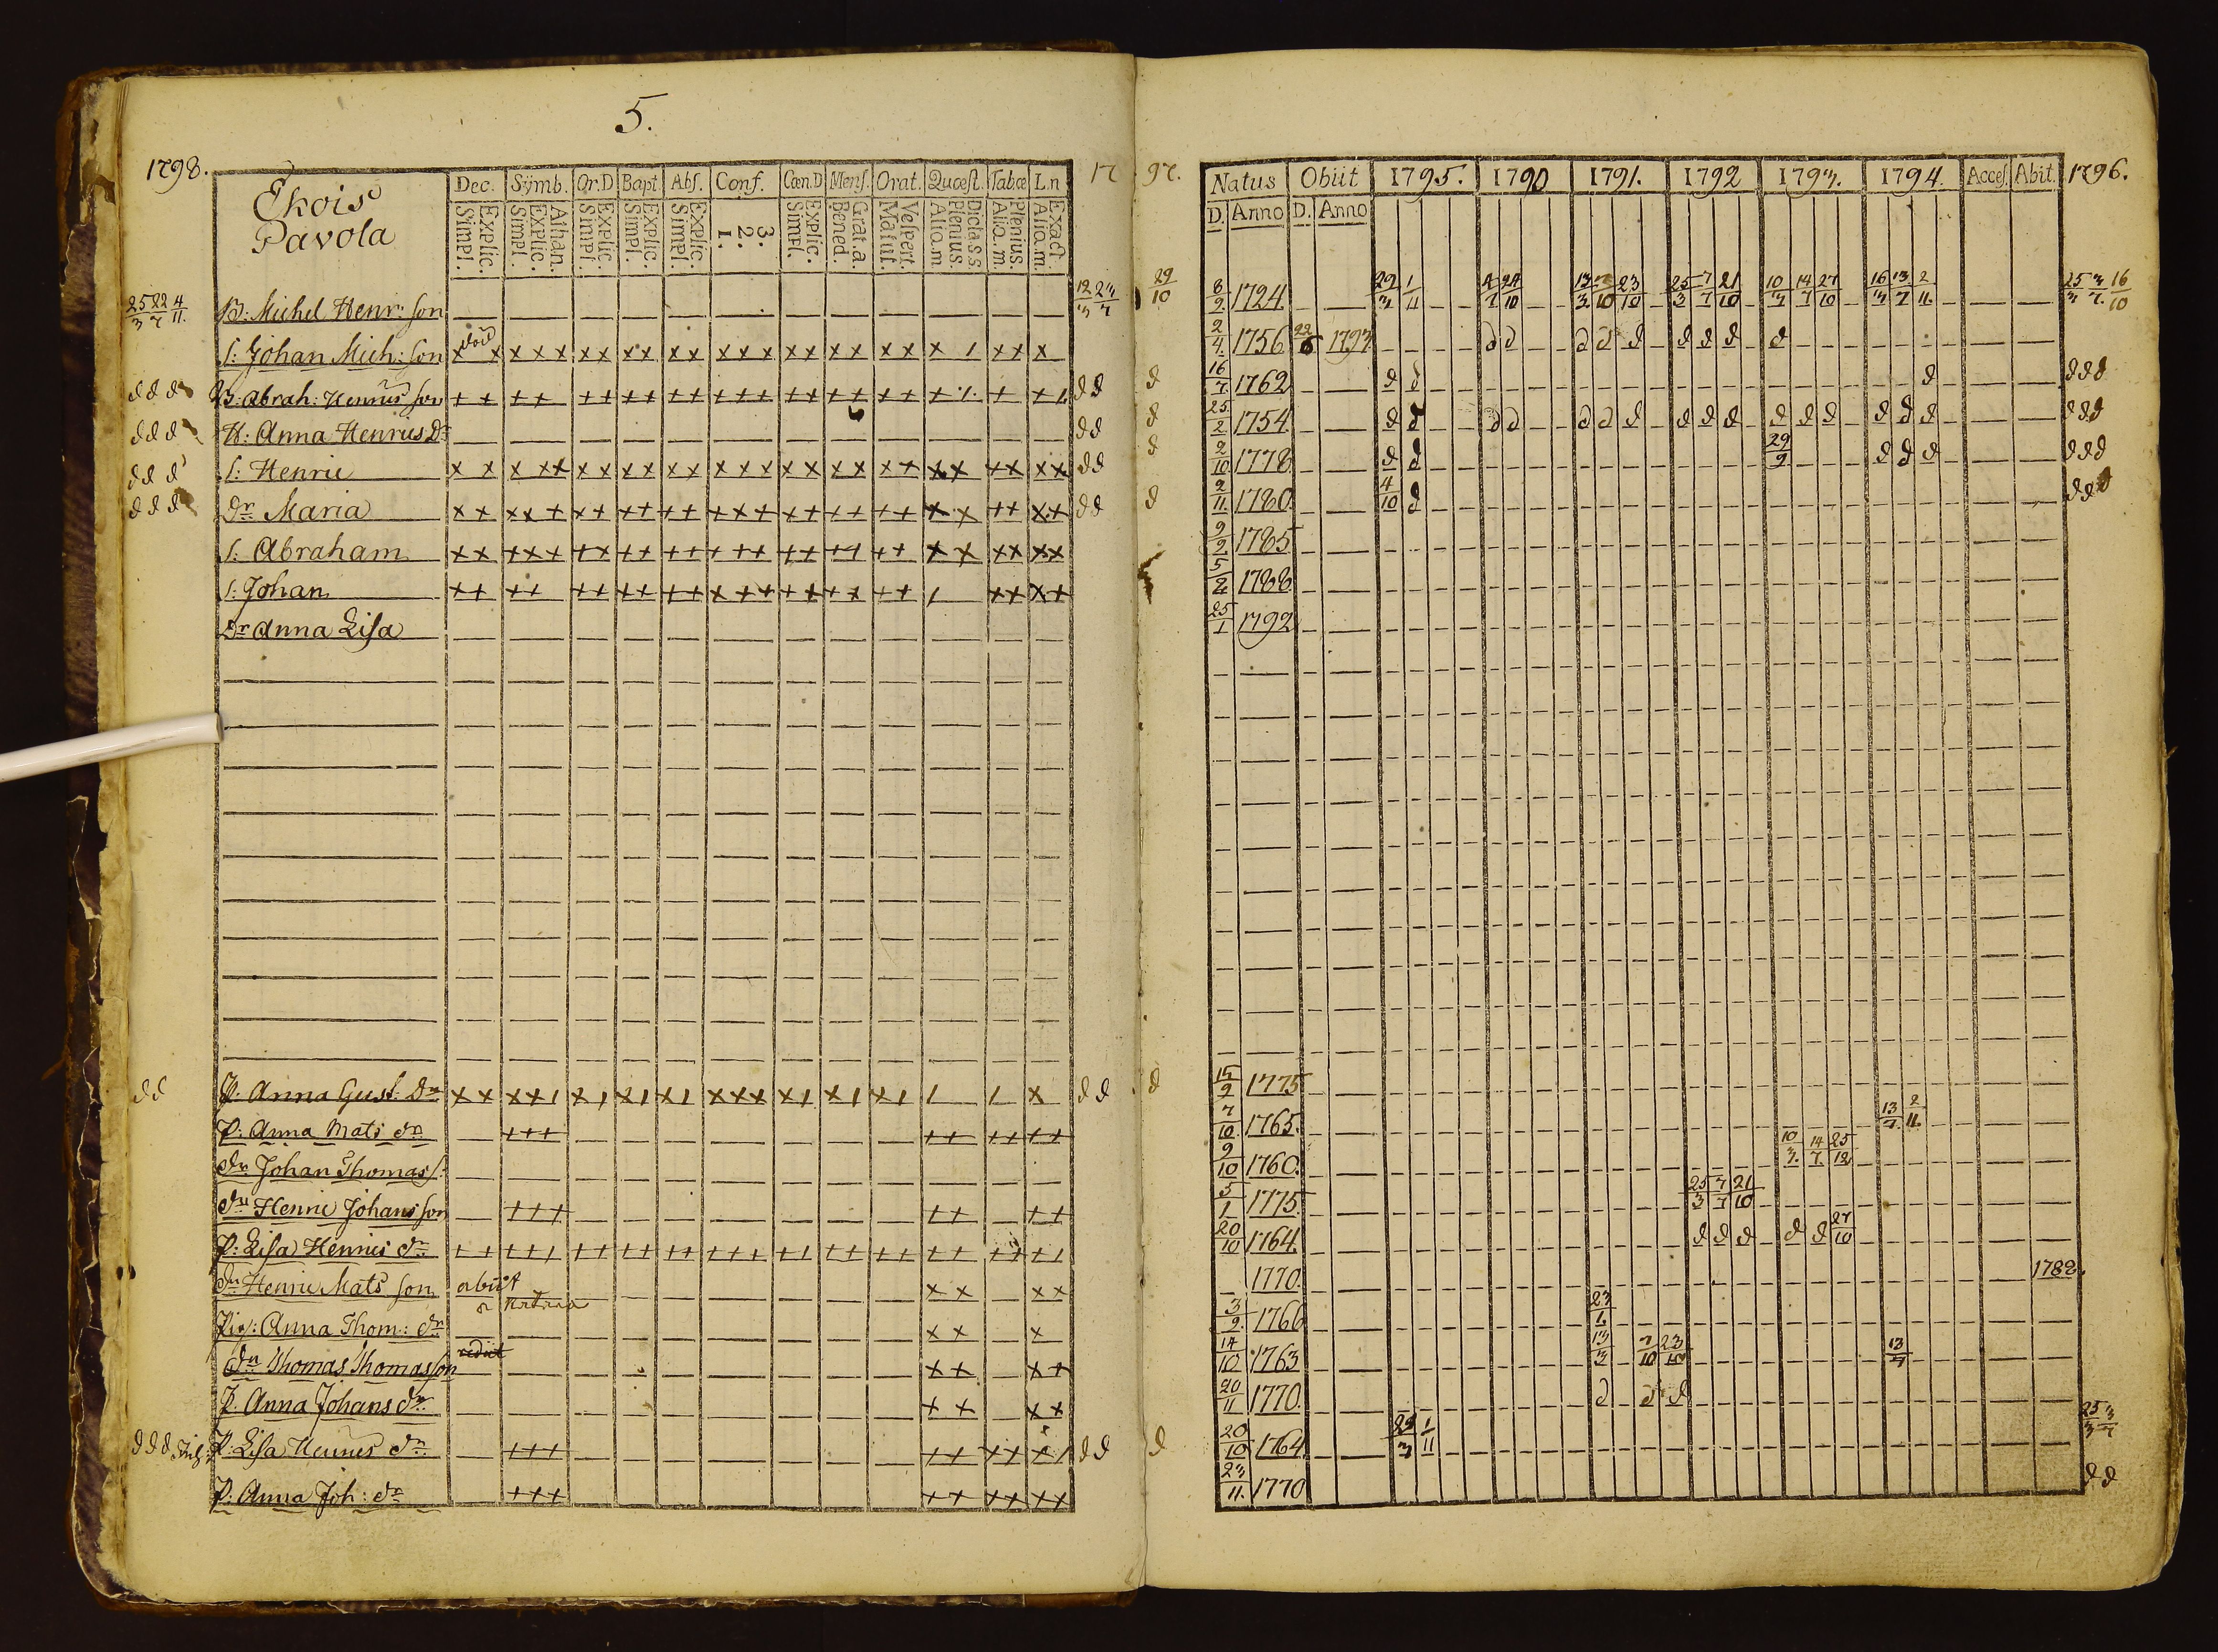 5.
1798.
Ekois
Pavola
Dec. Symb. Or.D Bapt. Abs. Conf. Cœn.D Mens. Orat. Quæst. Tabœ L.n
Explic. Simpl.
Athan. Explic. Simpl.
Explic. Simpl.
Explic. Simpl.
Explic. Simpl.
3. 2. 1.
Explic. Simpl.
Grat.a. Bened.
Vespert. Matut.
Dicta s s Plenius. Aliq.m
Plenius. Aliq.m.
Exact Aliq.m.
17 97.
Natus Obiit 1795. 1790 1791. 1792 1793. 1794. Acces. Abit. 1796.
D. Anno D. Anno
25/3 22/7 4/11. B: Michel Henr: son 12/3 23/7 29/10 8/9. 1724 29/3 1/11 4/7 24/10 25/3 7/7 21/10 10/3 14/7 27/10 16/3 13/7 2/11. 25/3 3/7. 16/10
S: Johan Mich: son x x x x x x x x x x x x x x x x x x x x x x 1 x x x 2/4. 1756 1793 d d d d d d d d d
d d d B: Abrah: Henrics son + + + + + + + + + + + + + + + + + + + + + + + d d d 16/7. 1762 d d d d d d
d d d H: Anna Henrics Dr d d d 25/2 1754 d d d d d d d d d d d d d d d d d d d
d d d S: Henric x x x x x x x x x x x x x x x x x x x + + x x + + x x d d 2/10 1778 d d 29/9 d d d d d d
d d d Dr Maria x x x x + + + + + + + + + + + + + + + + + x x + + x + d d d 2/11. 1780 4/10 d d d d
S: Abraham x x + + + + x + + + + + + x + + + + + + x x x x x x 9/9. 1785
S: Johan + + + + + + + + + + + + + + + + x + + 1 + + x + 5/2 1788
Dr Anna Lisa 25/1 1792
d d P: Anna Gust: Dr x x x x 1 x 1 x 1 x 1 x x x x 1 x 1 x 1 1 1 x d d d 15/9 1775
P: Anna Mats dr + + + + + + + + + 7/10. 1765. 13/7. 2/11.
dr Johan Thomas s: 9/10 1760. 10/3. 14/7. 25/12
dr Henric Johans son + + + + + + + 5/1. 1775 25/3 7/7 21/10
P: Lisa Henrics dr 20/10 1764. d d d d d 27/10
dr Henric Mats son abiit x x x x 1770. 1788.
Pig: Anna Thom: dr x x x 3/9. 1766 23/1.
dr Thomas Thomasson rediit x x x + 14/10 1763 13/3 7/10 23/10 13/7
P. Anna Johans dr + x x x 20/11 1770. d d d
d d d P: Lisa Henrics dr + + + + + + + + 1 d d d 20/10 1764 29/3 1/11 25/3 3/7
P: Anna Joh: dr + + + + + + + x x 23/11. 1770 d d